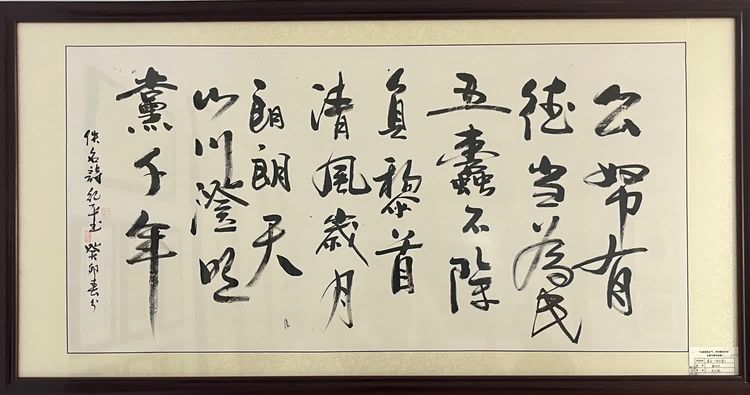 公帑有
德当為民
五蠹不除
負黎首
清風歲月
朗朗天
山川澄明
黨千年
佚名詩 紀平书 癸卯春分